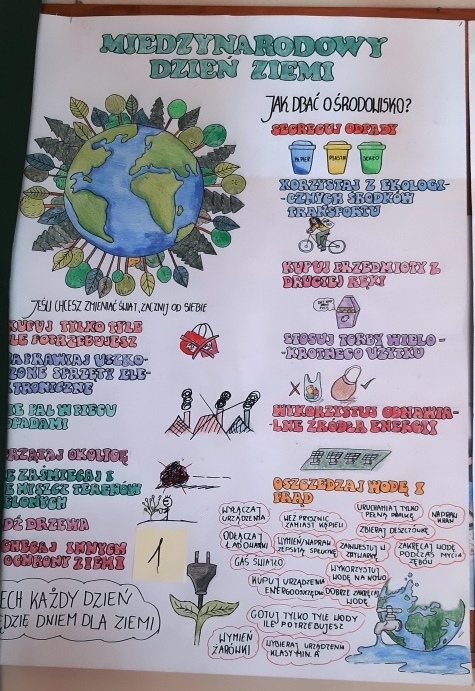 MIĘDZYNARODOWY
DZIEŃ ZIEMI
JAK DBAĆ O ŚRODOWISKO?
SEGREGUJ ODPADY
PAPIER
PLASTIK
SZKŁO
KORZYSTAJ Z EKOLOGI-
-CZNYCH ŚRODKÓW
TRANSPORTU
KUPUJ PRZEDMIOTY Z
DRUGIEJ RĘKI
STOSUJ TORBY WIELO-
-KROTNEGO UŻYTKU
WYKORZYSTUJ ODNAWIA-
-LNE ŹRÓDŁA ENERGII
OSZCZĘDZAJ WODĘ I
PRĄD
JEŚLI CHCESZ ZMIENIAĆ ŚWIAT, ZACZNIJ OD SIEBIE
KUPUJ TYLKO TYLE
ILE POTRZEBUJESZ
NAPRAWIAJ USZKO-
-DZONE SPRZĘTY ELE-
-KTRONICZNE
NIE PAL W PIECU
ODPADAMI
SPRZĄTAJ OKOLICĘ
NIE ZAŚMIECAJ I
NIE NISZCZ TERENÓW
ZIELONYCH
SADŹ DRZEWA
ZACHĘCAJ INNYCH
DO OCHRONY ZIEMI
1
NIECH KAŻDY DZIEŃ
BĘDZIE DNIEM DLA ZIEMI
WYŁĄCZAJ
URZĄDZENIA
WEŹ PRYSZNIC
ZAMIAST KĄPIELI
URUCHAMIAJ TYLKO
PEŁNĄ PRALKĘ
NAPRAW
KRAN
ZBIERAJ DESZCZÓWKĘ
ODŁĄCZAJ
ŁADOWARKI
WYMIEŃ/NAPRAW
ZEPSUTĄ SPŁUCZKĘ
ZAINWESTUJ W
ZMYWARKĘ
ZAKRĘCAJ WODĘ
PODCZAS MYCIA
ZĘBÓW
GAŚ ŚWIATŁO
WYKORZYSTUJ
WODĘ NA NOWO
KUPUJ URZĄDZENIA
ENERGOOSZCZĘDNE
DOBRZE ZAKRĘCAJ
WODĘ
GOTUJ TYLKO TYLE WODY
ILE POTRZEBUJESZ
WYMIEŃ
ŻARÓWKI
WYBIERAJ URZĄDZENIA
KLASY MIN. A